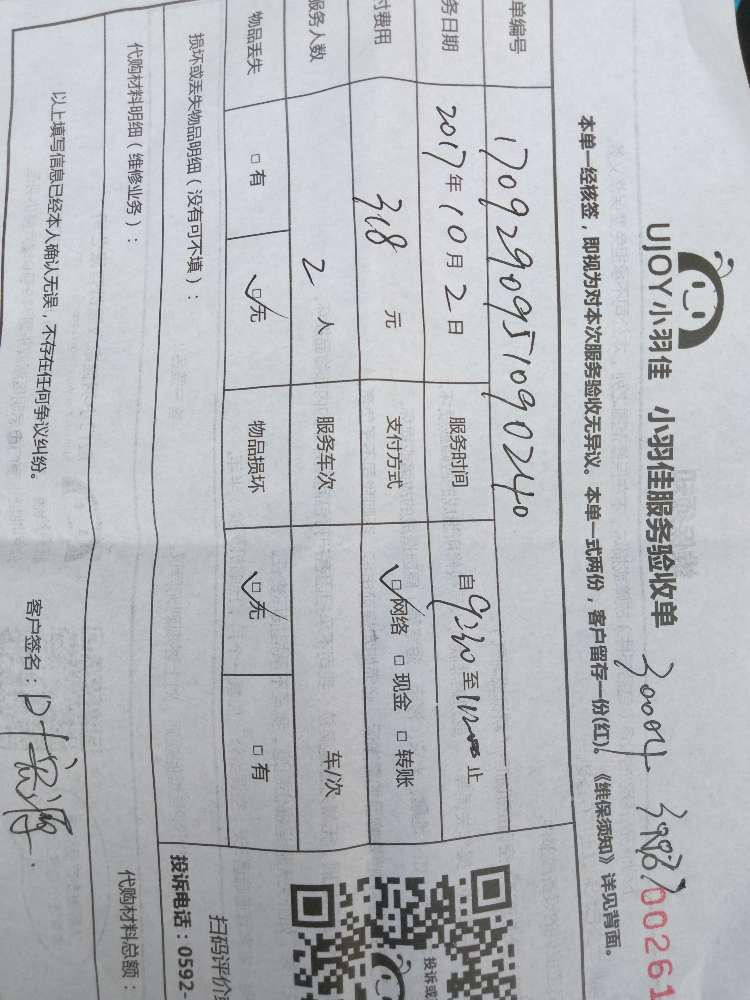 UJOY小羽佳 小羽佳服务验收单 30004 00261
本单一经核签，即视为对本次服务验收无异议。本单一式两份，客户留存一份(红)。《维保须知》详见背面。
单编号 1709290951090240
务日期 2017年10月2日 服务时间 自9:30至11:30止
付费用 318元 支付方式 ☑网络 □现金 □转账
服务人数 2人 服务车次 车/次
物品丢失 □有 ☑无 物品损坏 ☑无 □有
损坏或丢失物品明细（没有可不填）：
代购材料明细（维修业务）： 代购材料总额：
以上填写信息已经本人确认无误，不存在任何争议纠纷。 客户签名：
投诉或
扫码评价
投诉电话：0592-